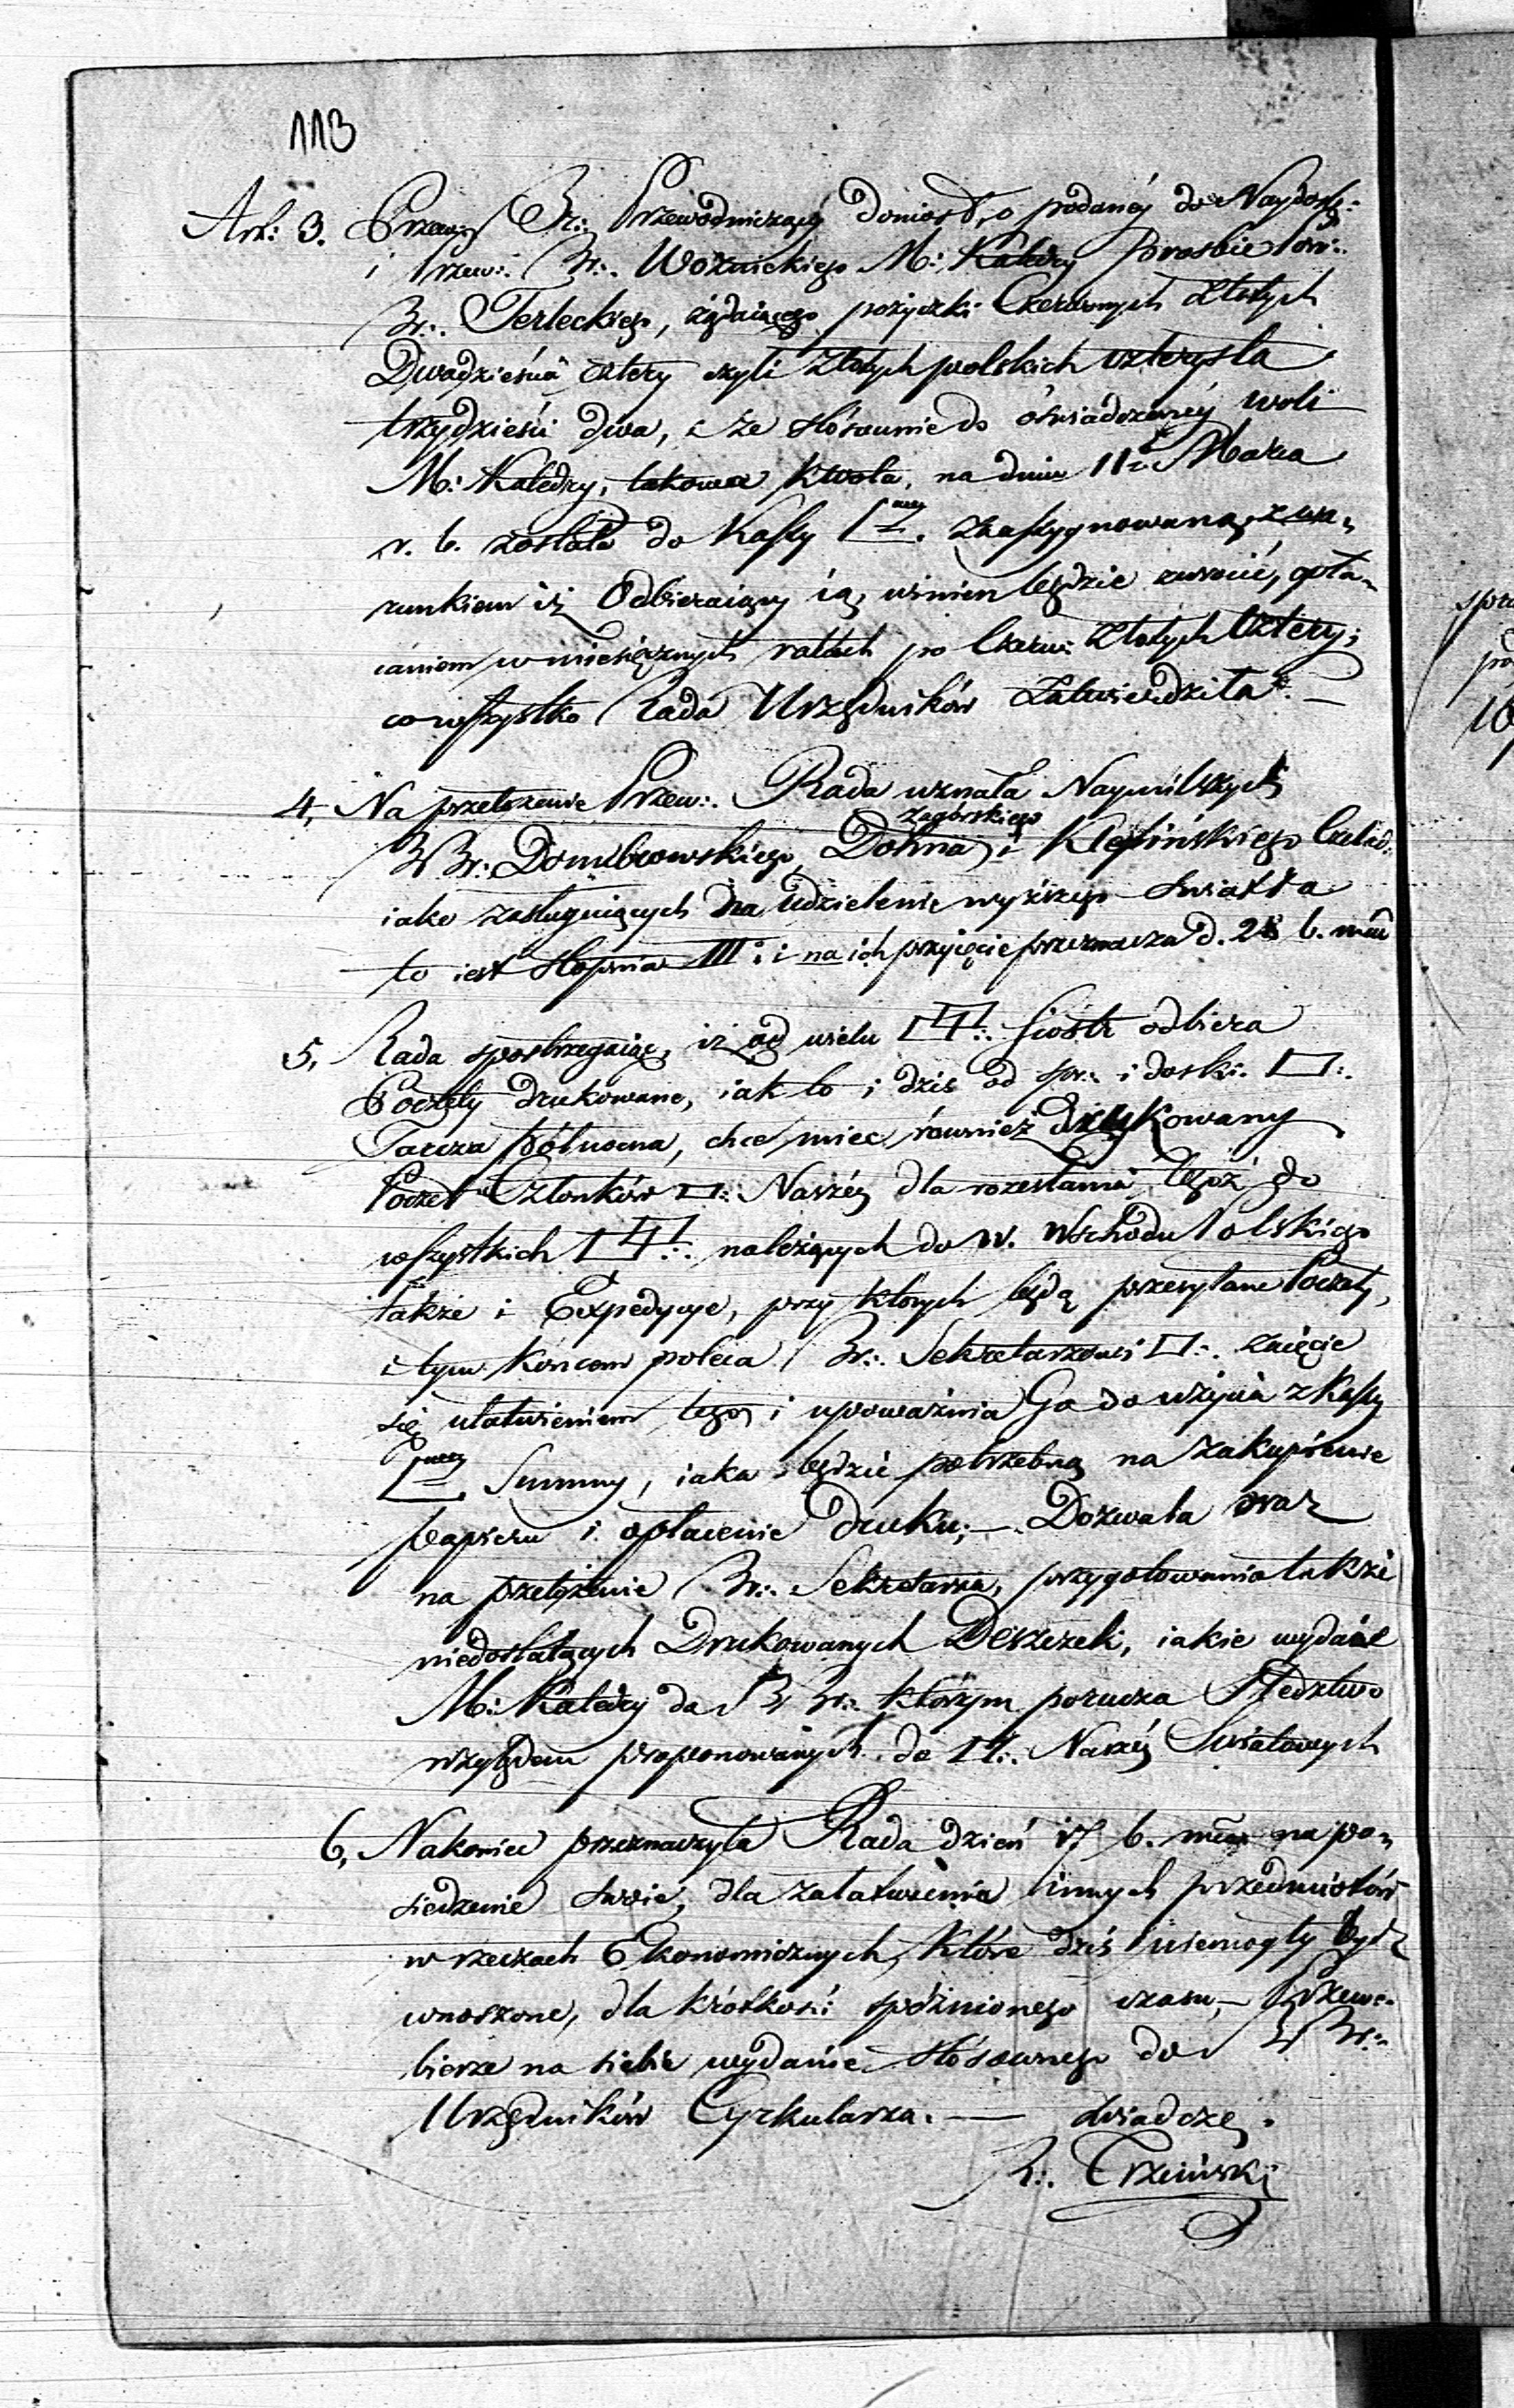 113
Art: 3. Przew: Br∴ Przewodniczący doniosł, o podanéy do Naydost:
i Przew∴ Br∴ Woźnickiego M: Katedry prosbie Par∴
Br∴ Terleckiego, żądaiącego pożyczki Czerwonych złotych
Dwadzieścia cztery czyli Złotych polskich czterysta
trzydzieści dwa, i że stósownie do oświadczonéy woli
M: Katedry, takowa kwota, na dniu 11. Marca
r. b. została do Kassy zaassygnowaną, z wa„
runkiem iż Odbieraiący ią, winien będzie zwrócić, opła„
caniem w miesięcznych ratach po Czerw: Złotych Cztery;
co wszystko Rada Urzędników Zatwierdziła. —
4, Na przełożenie Przew∴ Rada uznała Naymilszych
Zagórskiego
BBr: Dombrowskiego, Dohna, i Klepińskiego Czelad:
iako zasługuiących na udzielenie wyższego Swiatła
to iest stopnia III: i na ich przyięcie przeznacza d. 28 b. mca
5, Rada spostrzegaiąc, iż od wielu ☐☐∴ Siostr odbiera
Poczty drukowane, iak to i dziś od spr∴ i dosk∴ ☐∴
Tarcza północna, chce mieć również drukowany
Poczet Członków ☐∴ Naszéy dla rozesłania tegoż do
wszystkich ☐☐∴ należących do W. Wschodu Polskiego
także i Expedycye, przy których będą przesyłane Poczty,
i tym końcem poleca Br∴ Sekretarzowi ☐∴ zaięcie
się ułatwieniem tego, i upoważnia Go do użycia z Kassy
Summy, iaka będzie potrzebną na zakupienie
papieru i opłacenie druku; — Dozwala oraz
na przełożenie Br∴ Sekretarza, przygotowania także
niedostaiących Drukowanych Deszczek, iakie wydaie
M: Katedry do BBr∴ którym porucza Śledztwo
względem proponowanych do ☐∴ Naszéy Swiatowych
6, Nakoniec przeznaczyła Rada dzień 17 b. mca na po„
siedzenie swoie, dla załatwienia innych przedmiotów
w rzeczach Ekonomicznych, które dziś niemogły bydź
wnoszone, dla krótkości spóźnionego czasu, — Przew∴
bierze na siebie wydanie stósownego do BBr∴
Urzędników Cyrkularza. — Zwiadczę.
R∴ Trzciński